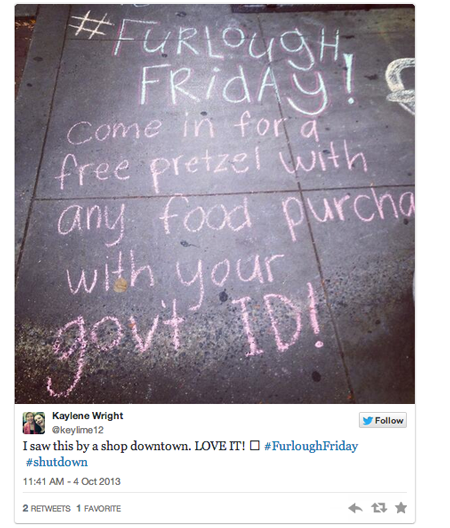 #FURLOUGH
FRIDAY!
Come in for a
free pretzel with
any food purcha
with your
gov't ID!
Kaylene Wright
@keylime12
Follow
I saw this by a shop downtown. LOVE IT! #FurloughFriday
#shutdown
11:41 AM - 4 Oct 2013
2 RETWEETS 1 FAVORITE